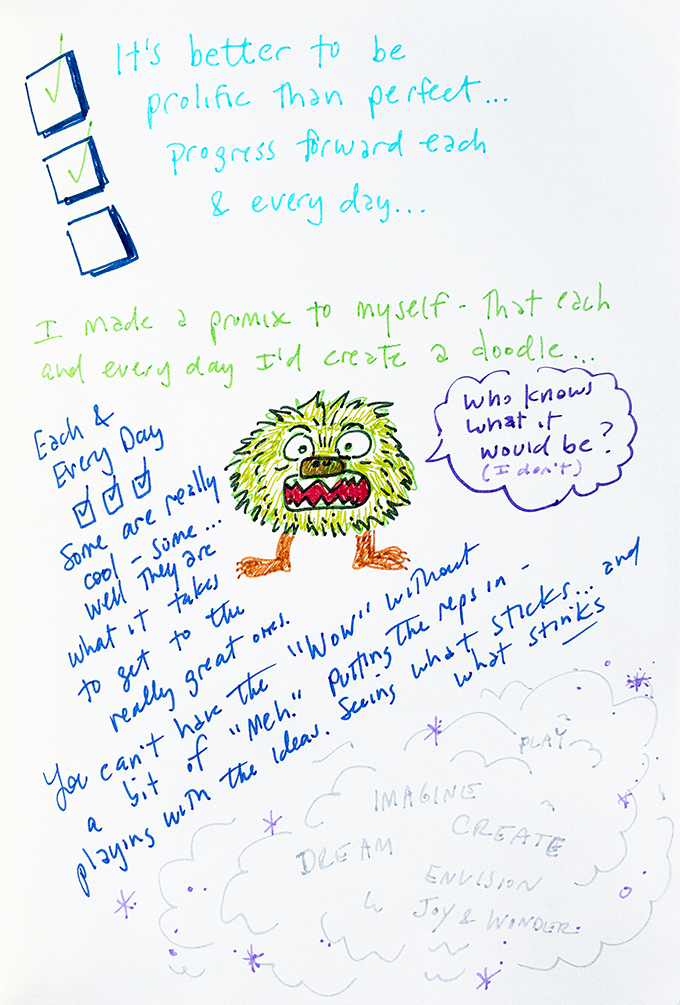 It's better to be
prolific than perfect...
progress forward each
& every day...
I made a promix to myself - that each
and every day I'd create a doodle...
Who knows
what it
would be?
(I don't)
Each &
Every Day
Some are really
cool - some...
well they are
what it takes
to get to the
really great ones.
You can't have the "Wow" without
a bit of "Meh." Putting the reps in -
playing with the ideas. Seeing what sticks... and
what stinks
PLAY
IMAGINE
CREATE
DREAM
ENVISION
JOY & WONDER.